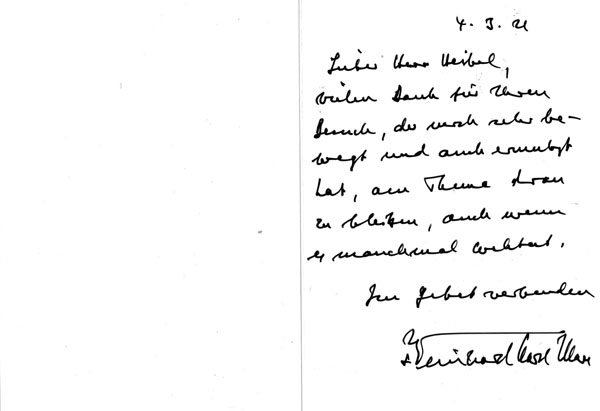 4. 3. 21
Lieber Herr Heibel,
vielen Dank für Ihren
Besuch, der mich sehr be-
wegt und auch ermutigt
hat, am Thema dran
zu bleiben, auch wenn
es manchmal weh tut.
Im Gebet verbunden
+ Reinhard Card Marx